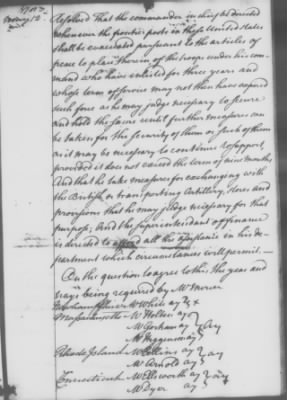 May 12
Resolved That the commander in chief be directed
whenever the frontier posts in these United States
shall be evacuated pursuant to the articles of
peace to place therein of the troops under his com
mand who have enlisted for three years and
whose term of service may not then have expired
such force as he may judge necessary to secure
and hold the same until further measures can
be taken for the security of them or such of them
as it may be necessary to continue &
provided it does not exceed the term of nine months
And that he take measures for exchanging with
the British or transporting Artillery, stores and
provisions that he may judge necessary for that
purpose; And the Superintendant of finance
is directed to afford all the assistance in his de-
partment which circumstances will permit. —
On the question to agree to this the yeas and
nays being required by Mr
New hampshire Mr White ay
Massachusetts Mr Holten ay
Mr Gorham ay } Ay
Mr Higginson ay
Rhode Island Mr Collins ay } ay
Mr Arnold ay
Connecticut Mr Ellsworth ay } ay
Mr Dyer ay